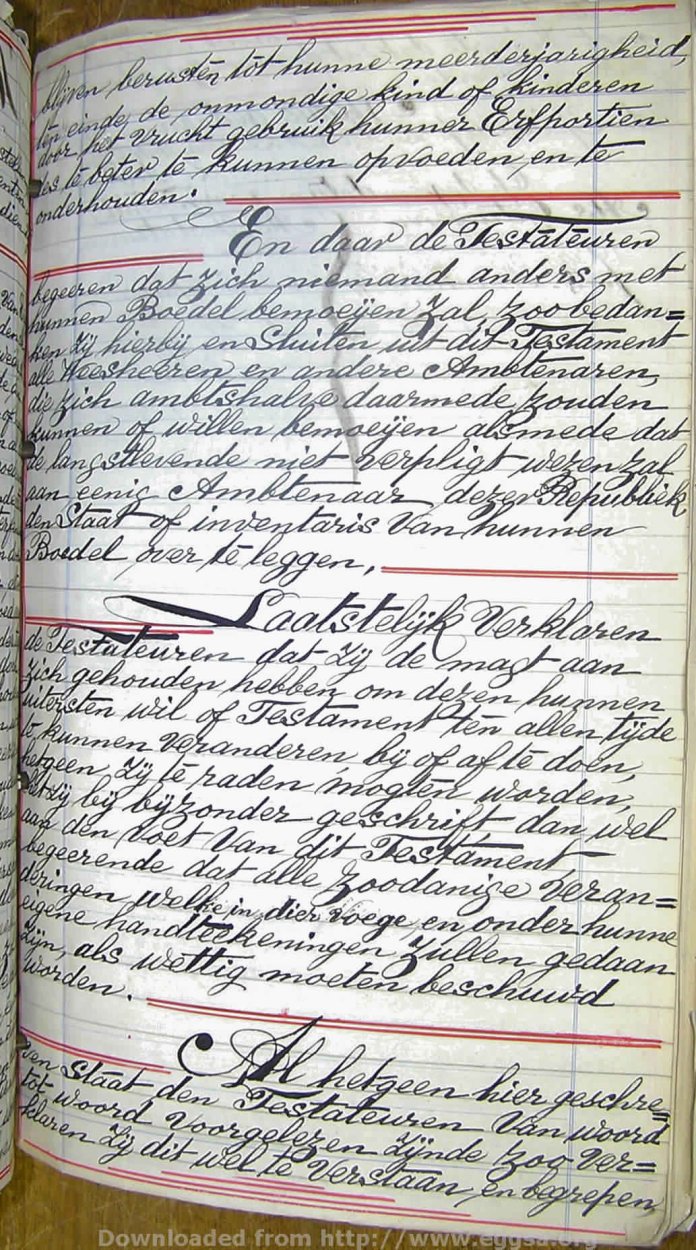 blijven berusten tot hunne meerderjarigheid,
ten einde, de, onmondige kind of kinderen
door het vruchtgebruik hunner Erfportien
des te beter te kunnen opvoeden, en te
onderhouden.
En daar de Testateuren
begeeren dat zich niemand anders met
hunnen Boedel bemoeijen zal, zoo bedan=
ken zij hierbij, en sluiten uit dit Testament
alle Weesheeren en andere Ambtenaren,
die zich ambtshalve daarmede zouden
kunnen of willen bemoeijen alsmede dat
de langstlevende niet verpligt wezen zal
aan eenig Ambtenaar dezer Republiek,
den Staat of inventaris van hunnen
Boedel over te leggen,
Laatstelijk Verklaren
de Testateuren dat zij de magt aan
zich gehouden hebben, om dezen hunnen
uitersten wil of Testament ten allen tijde
te kunnen veranderen bij of af te doen,
hetgeen zij te raden mogten worden,
hetzij bij bijzonder geschrift, dan wel
aan den voet van dit Testament
begeerende dat alle zoodanige Veran=
deringen welke in dier voege, en onder hunne
eigene handteekeningen zullen gedaan
zijn, als wettig moeten beschuwd
worden.
Al hetgeen hier geschre=
ven staat den Testateuren van woord
tot woord voorgelezen zijnde zoo ver=
klaren zij dit wel te verstaan, en begrepen
Downloaded from http://www.eggsa.org